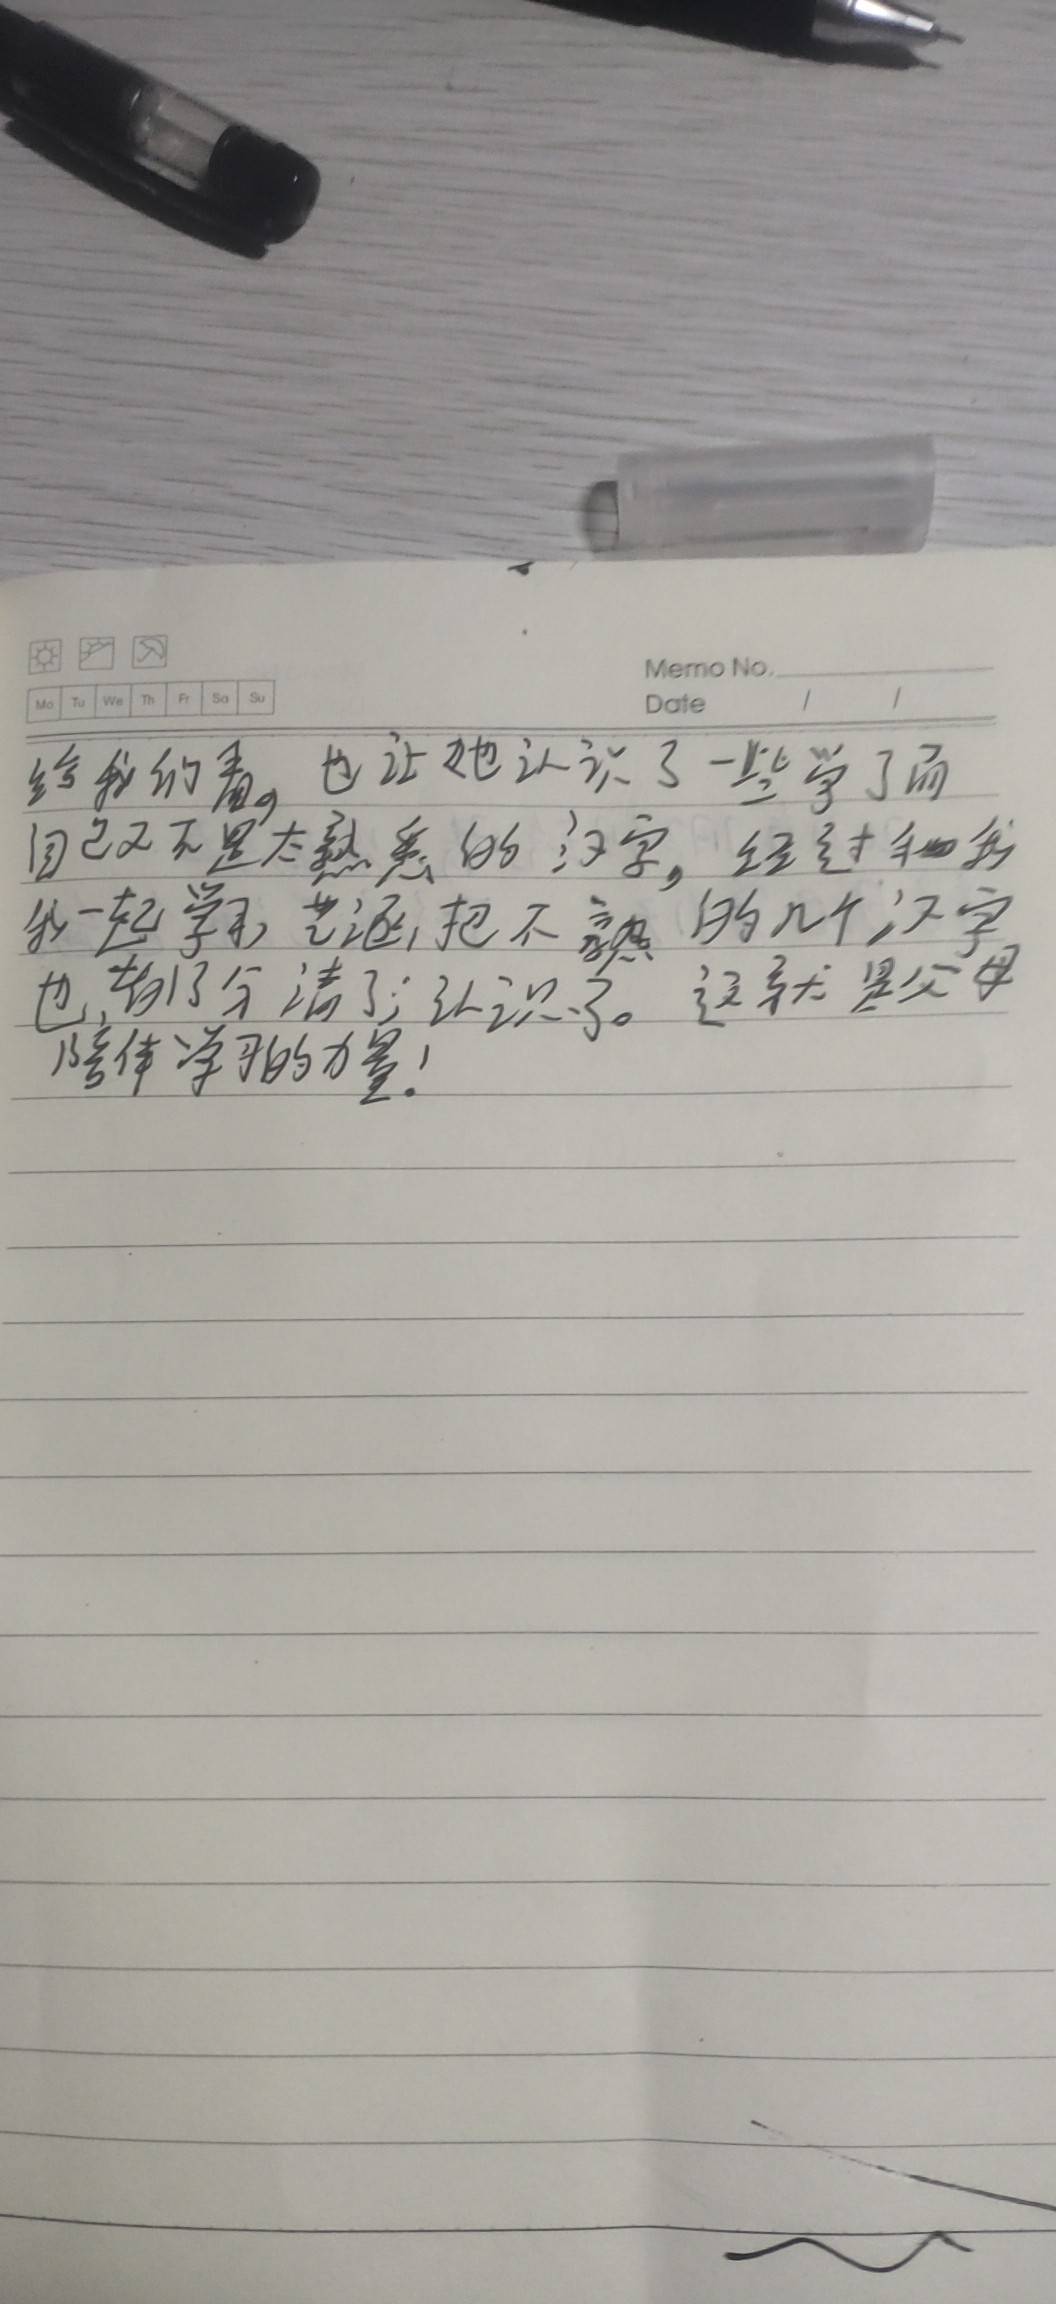 Memo No.
Mo Tu We Th Fr Sa Su
Date / /
给我们看，也让她认识了一些学了而
自己又不是太熟悉的汉字，经过和我
我一起学习，把不熟的几个汉字
也都分清了；认识了。这就是父母
陪伴学习的力量！